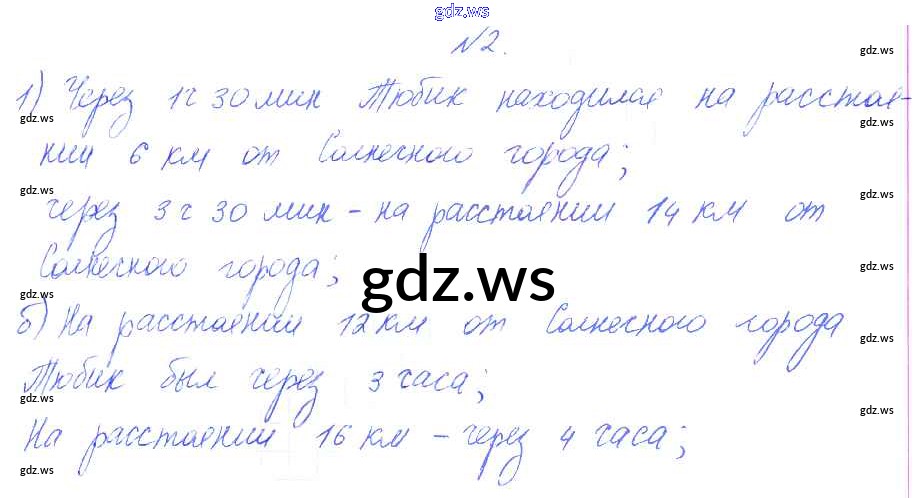 gdz.ws
№2.
gdz.ws
1) Через 1ч 30 мин Тюбик находился на расстоя-
gdz.ws gdz.ws
нии 6 км от Солнечного города;
gdz.ws gdz.ws
через 3 ч 30 мин - на расстоянии 14 км от
Солнечного города;
gdz.ws
gdz.ws
gdz.ws
б) На расстоянии 12 км от Солнечного города
gdz.ws
Тюбик был через 3 часа;
gdz.ws gdz.ws
На расстоянии 16 км - через 4 часа;
gdz.ws